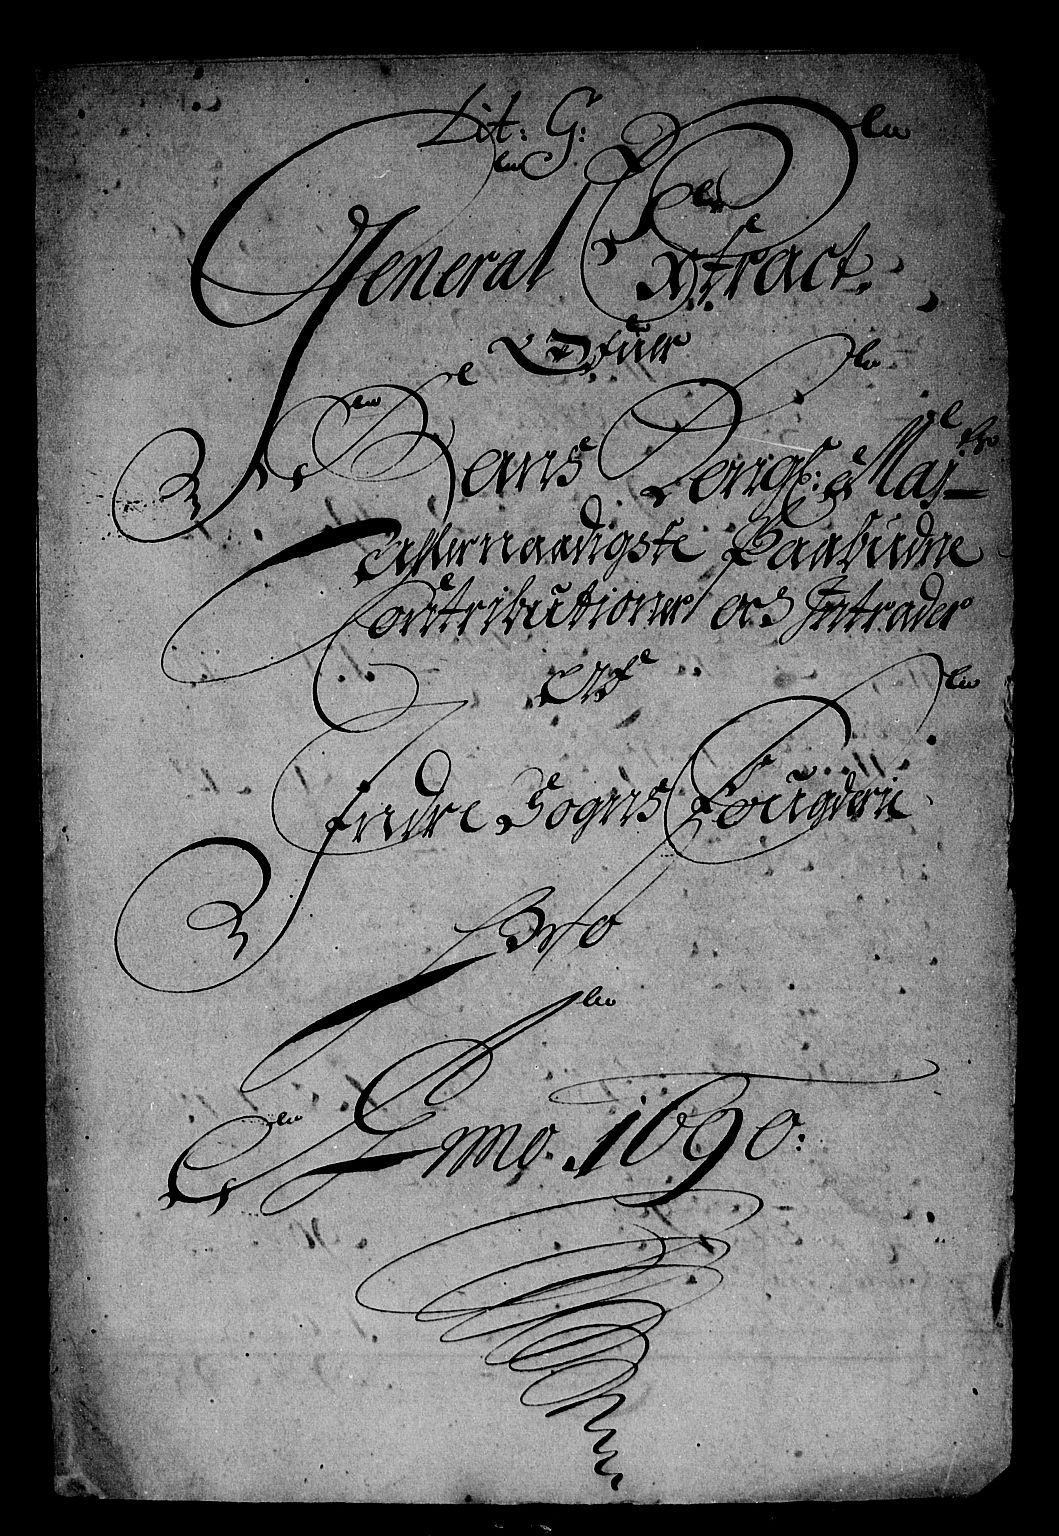 Lit: G:
General Extract
Ofuer
Hans Kongl: Maj:tz
Allernaadigste Paabudne
Contributioner och Intrader
Af
Indre Sogns Fougderie
Pro
Anno. 1690: